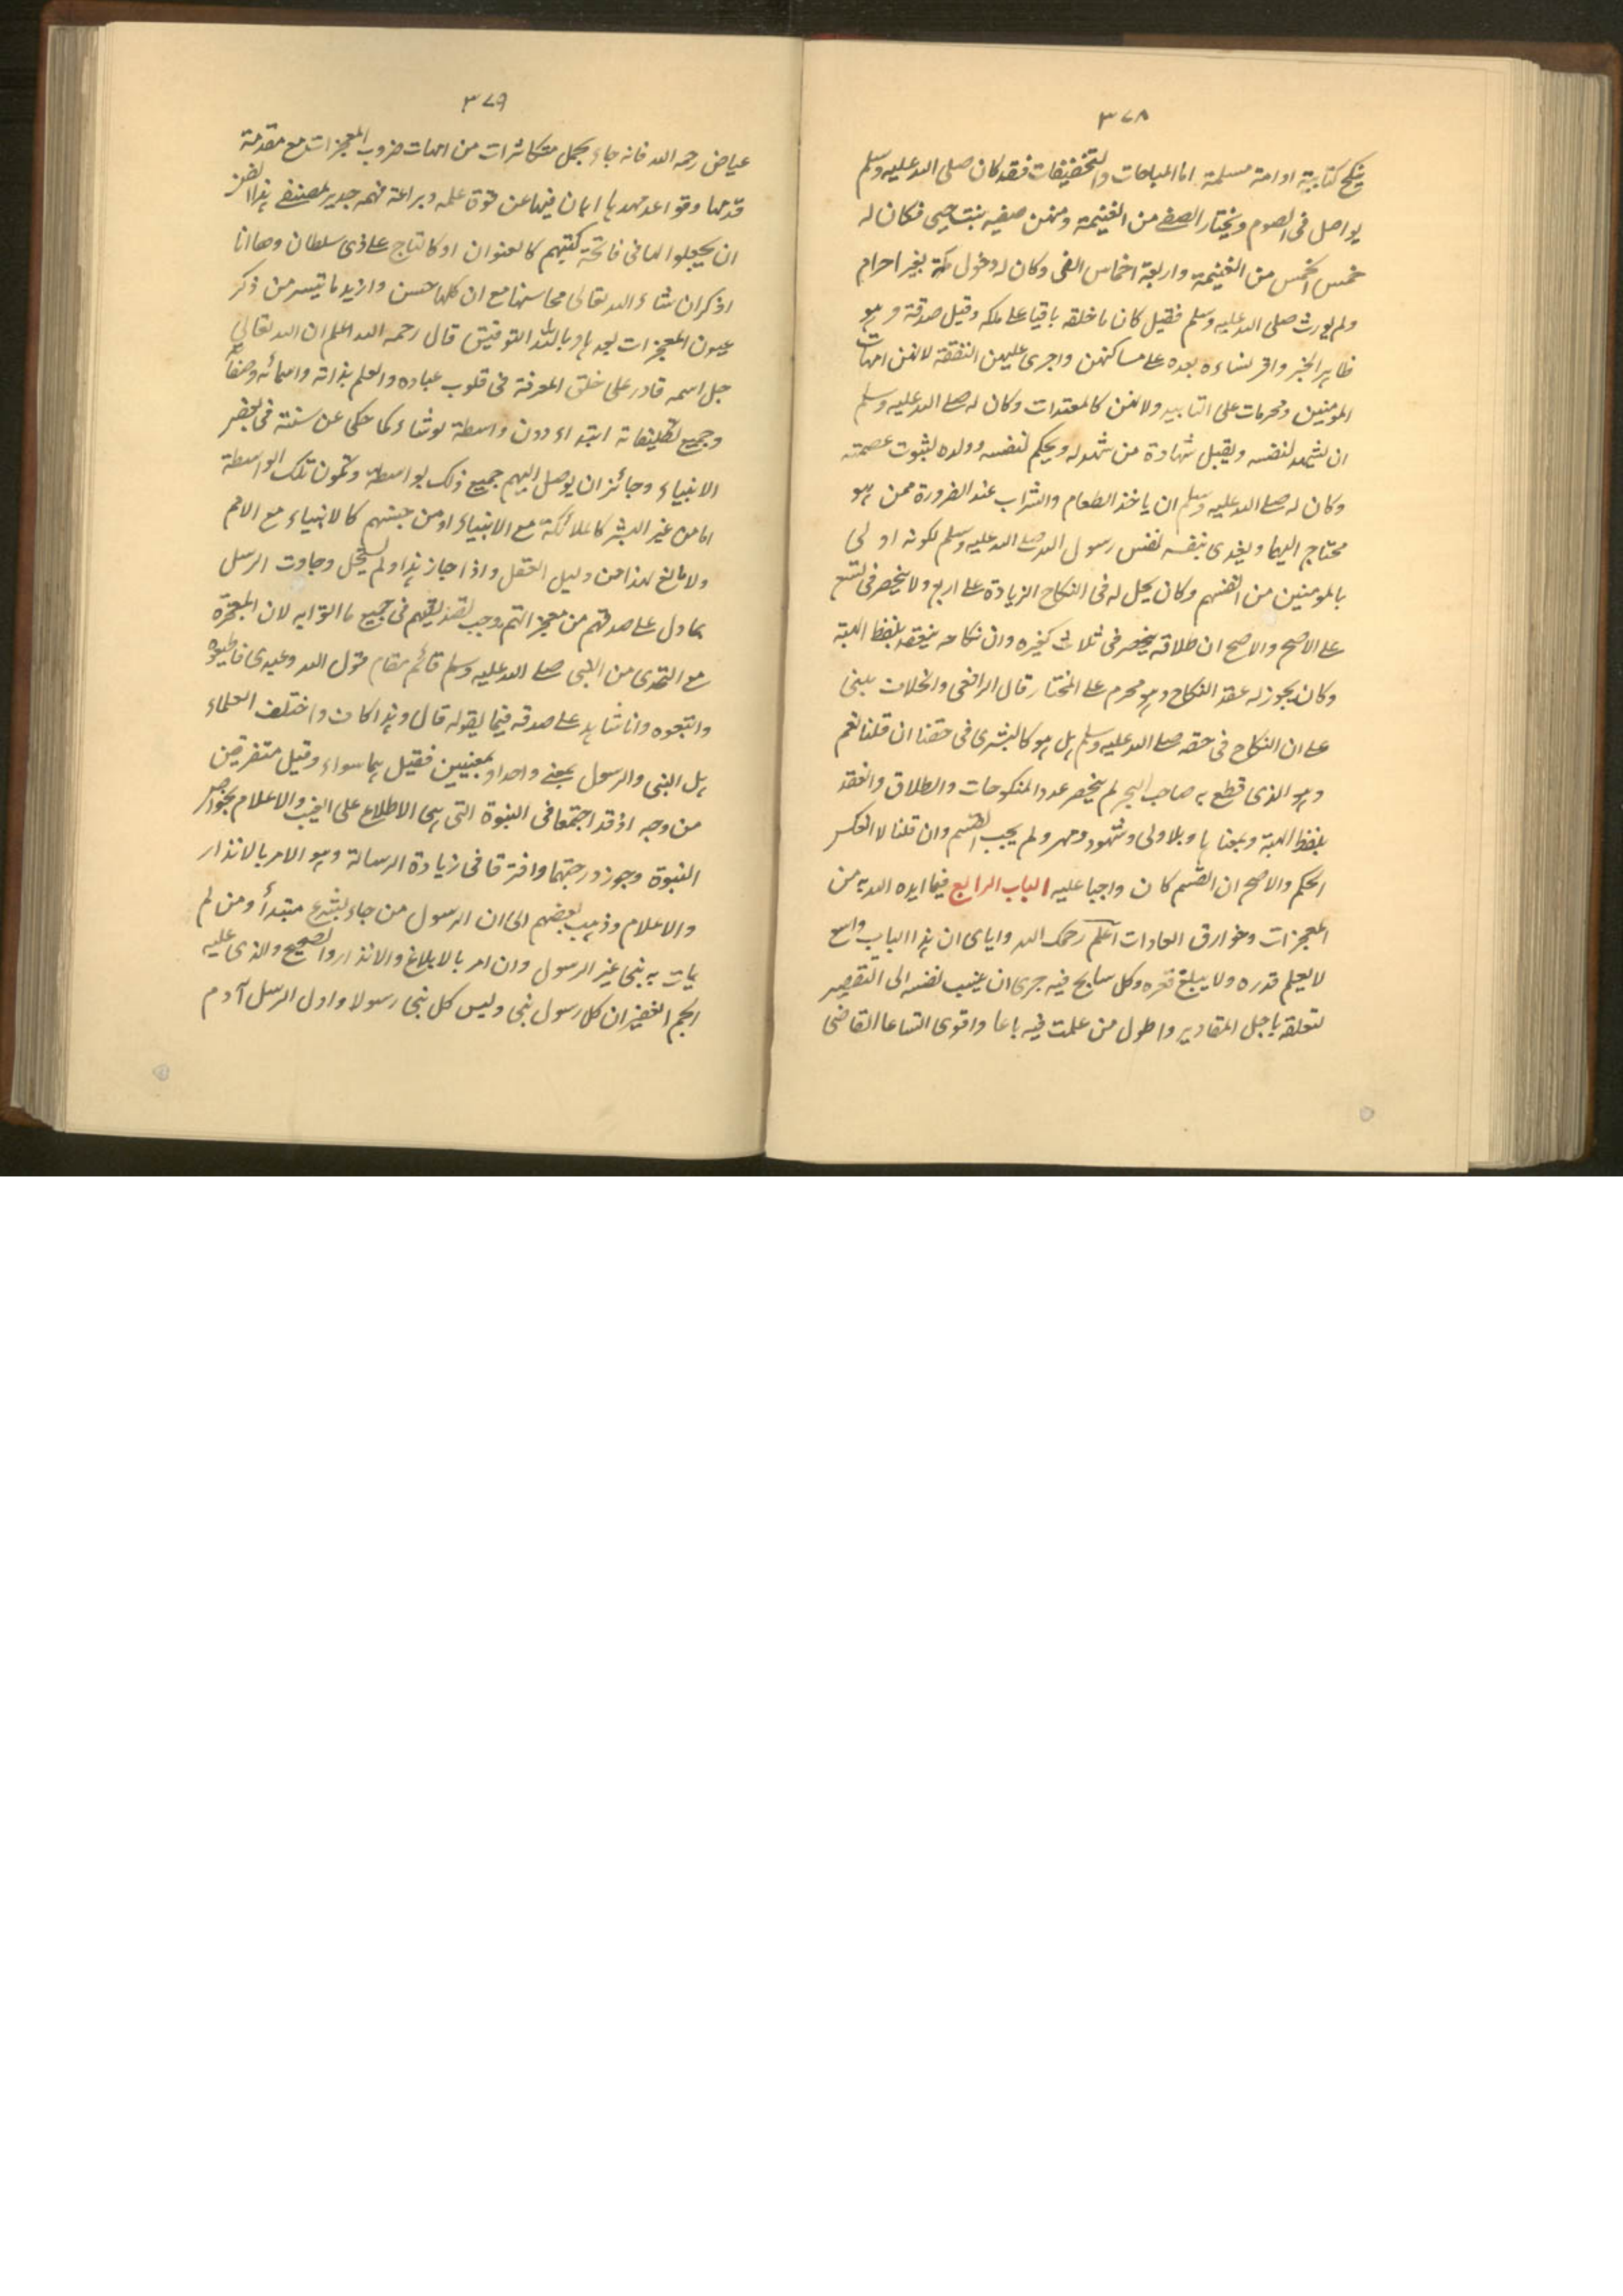 ٣٧٨
ينكح كتابية او امة مسلمة اما المباحات والتخفيفات فقد كان صلى الله عليه وسلم
يواصل فى الصوم ويختار الصفى من الغنيمة ومنهن صفيه بنت حيى فكان له
خمس الخمس من الغنيمة واربعة اخماس الفى وكان له دخول مكة بغير احرام
ولم يورث صلى الله عليه وسلم فقيل كان ما خلفه باقيا على ملكه وقيل صدقة وهو
ظاهر الخبر واقر نساءه بعده على مساكنهن واجرى عليهن النفقة لانهن امهات
المومنين ومحرمات على التابيد ولانهن كالمعتدات وكان له صلى الله عليه وسلم
ان يشهد لنفسه ويقبل شهادة من شهد له ويحكم لنفسه وولده لثبوت عصمته
وكان له صلى الله عليه وسلم ان ياخذ الطعام والشراب عند الضرورة ممن هو
محتاج اليها ويفدى بنفسه نفس رسول الله صلى الله عليه وسلم لكونه اولى
بالمومنين من انفسهم وكان يحل له فى النكاح الزيادة على اربع ولا ينحصر فى تسع
على الاصح والاصح ان طلاقه ينحصر فى ثلاث كغيره وان نكاحه ينعقد بلفظ الهبة
وكان يجوز له عقد النكاح وهو محرم على المختار قال الرافعى والخلاف يبنى
على ان النكاح فى حقه صلى الله عليه وسلم هل هو كالتسرى فى حقنا ان قلنا نعم
وهو الذى قطع به صاحب البحر لم ينحصر عدد المنكوحات والطلاق وانعقد
بلفظ الهبة وبمعناها وبلا ولى وشهود ومهر ولم يجب القسم وان قلنا لا انعكس
الحكم والاصح ان القسم كان واجبا عليه الباب الرابع فيما ايده الله به من
المعجزات وخوارق العادات اعلم رحمك الله واياى ان هذا الباب واسع
لا يعلم قدره ولا يبلغ قعره وكل سابح فيه حرى ان ينسب نفسه الى التقصير
لتعلقه باجل المقادير واطول من علمت فيه باعا واقوى اتساعا القاضى
٣٧٩
عياض رحمه الله فانه جاء بجمل متكاثرات من امهات ضروب المعجزات مع مقدمة
قدمها وقواعد مهدها ابان فيها عن قوة علمه وبراعة فهمه جدير لمصنفى هذا الفن
ان يجعلوها فى فاتحة كتبهم كالعنوان او كالتاج على ذى سلطان وها انا
اذكر ان شاء الله تعالى محاسنها مع ان كلها حسن وازيد ما تيسر من ذكر
عيون المعجزات بعدها وبالله التوفيق قال رحمه الله اعلم ان الله تعالى
جل اسمه قادر على خلق المعرفة فى قلوب عباده والعلم بذاته واسمائه وصفاته
وجميع تكليفاته ابتداء دون واسطة لو شاء كما حكى عن سنته فى بعض
الانبياء وجائز ان يوصل اليهم جميع ذلك بواسطة وتكون تلك الواسطة
اما من غير البشر كالملائكة مع الانبياء او من جنسهم كالانبياء مع الامم
ولا مانع لهذا من دليل العقل واذا جاز هذا ولم يستحل وجاءت الرسل
بما دل على صدقهم من معجزاتهم وجب تصديقهم فى جميع ما اتوا به لان المعجزة
مع التحدى من النبى صلى الله عليه وسلم قائم مقام قول الله وعبدى فاطيعوه
واتبعوه وانا شاهد على صدقه فيما يقوله قال وهذا كاف واختلف العلماء
هل النبى والرسول بمعنى واحد او بمعنيين فقيل هما سواء وقيل متفرقين
من وجه اذ قد اجتمعا فى النبوة التى هى الاطلاع على الغيب والاعلام بخواص
النبوة وحوز درجتهما وافترقا فى زيادة الرسالة وهو الامر بالانذار
والاعلام وذهب بعضهم الى ان الرسول من جاء بشرع مبتدأ ومن لم
يات به نبى غير الرسول وان امر بالابلاغ والانذار والصحيح والذى عليه
الجم الغفير ان كل رسول نبى وليس كل نبى رسولا واول الرسل آدم